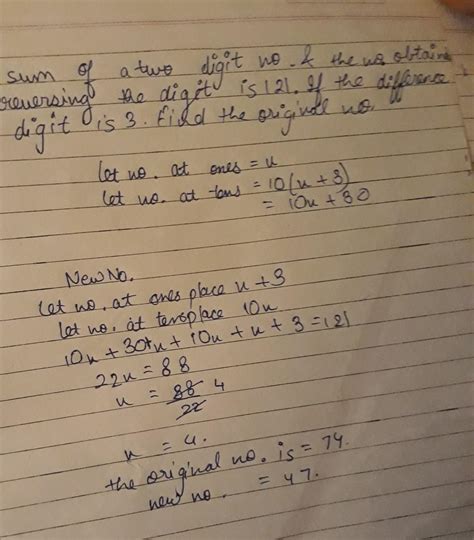 sum of a two digit no. & the no. obtained
reversing the digit is 121. If the difference
digit is 3. Find the original no.
Let no. at ones = u
Let no. at tens = 10(u+3)
= 10u + 30
New No.
Let no. at ones place u+3
Let no. at tens place 10u
10u + 30 + u + 10u + u + 3 = 121
22u = 88
u = 88 4
22
u = 4.
the original no. is = 74.
new no. = 47.